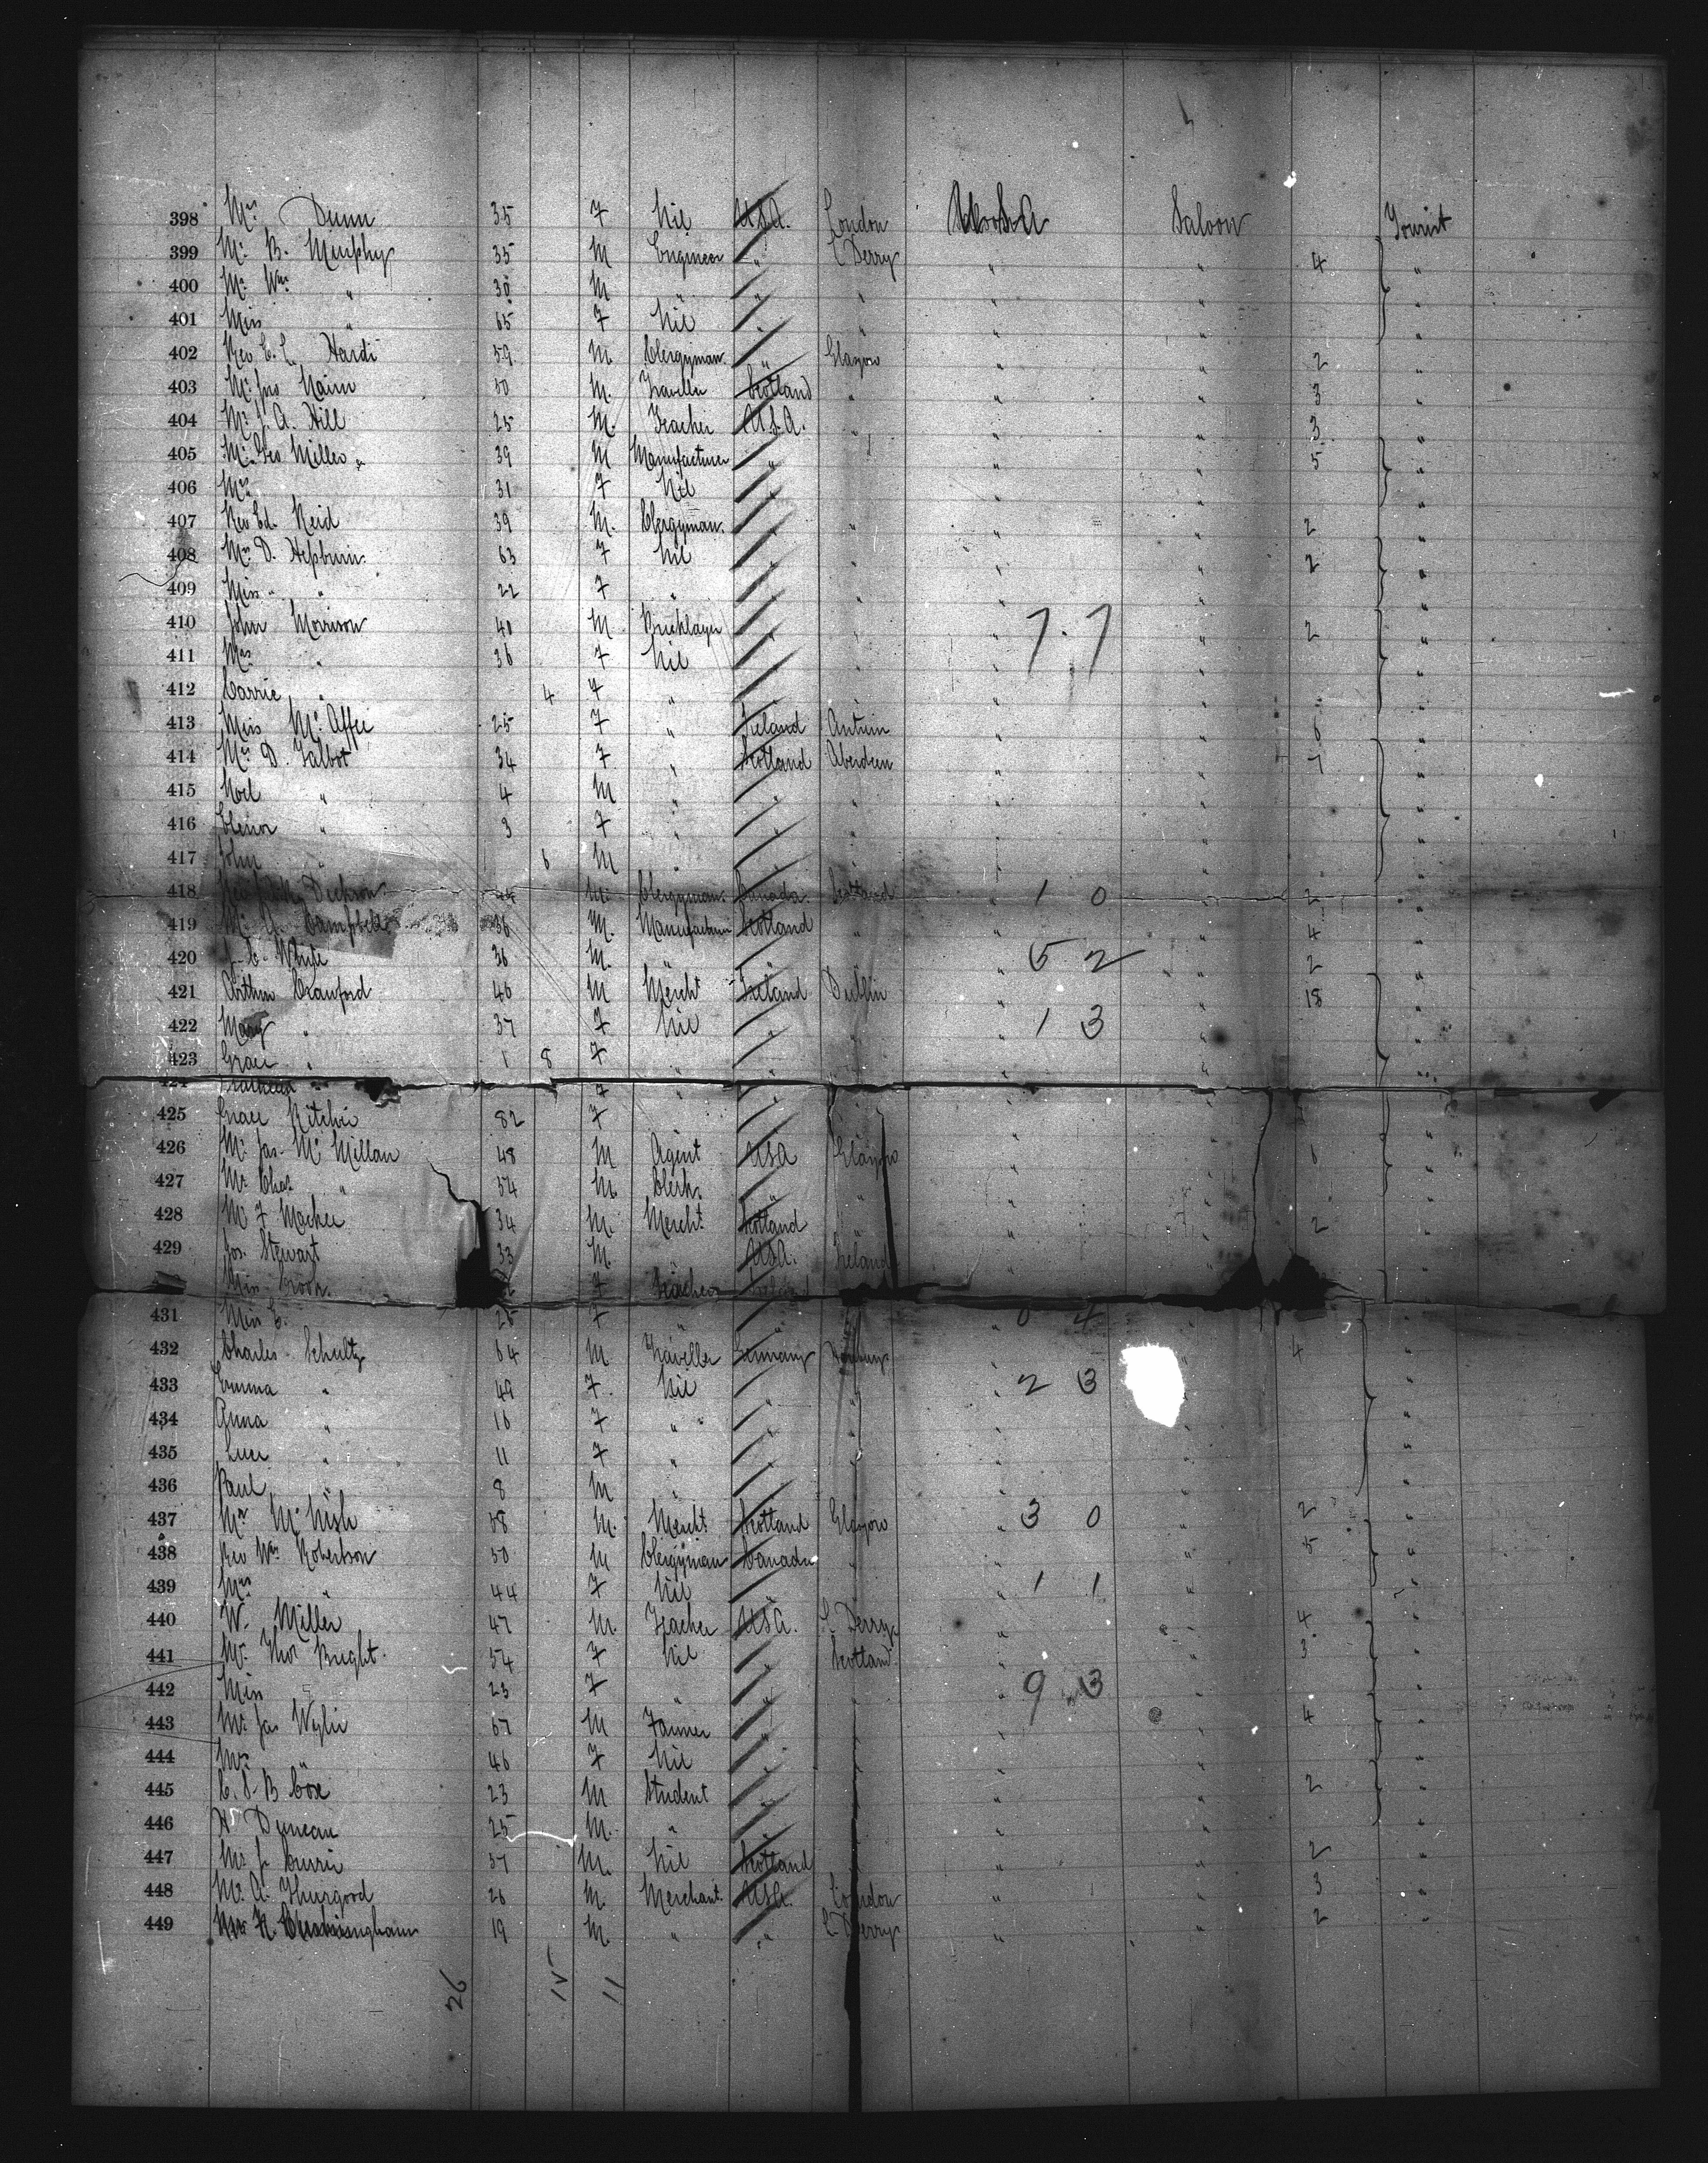 398 Mrs Dunn 35 F Nil U.S.A. London U.S.A Saloon Tourist
399 Mr B. Murphy 35 M Engineer " L'Derry " " 4 "
400 Mr Wm " 30 M " " " " " "
401 Miss " 65 F Nil " " " " "
402 Rev E. L. Hardi 59 M. Clergyman " Glasgow " " 2 "
403 Mr Jno Nairn 50 M. Traveller Scotland " " " 3 "
404 Mr J. A. Hill 25 M. Teacher U.S.A. " " " 3 "
405 Mr Geo Miller 39 M Manufacturer " " " 5 "
406 Mrs " 31 F Nil " " " "
407 Rev Ed. Reid 39 M. Clergyman " " " " 2 "
408 Mrs D. Hepburn 63 F Nil " " " " 2 "
409 Miss " 22 F " " " " " "
410 John Morrison 40 M. Bricklayer " " " 7.7 " 2 "
411 Mrs " 36 F Nil " " " " "
412 Carrie " 4 F " " " " " "
413 Miss McAffee 25 F " Ireland Antrim " " 6 "
414 Mrs D. Talbot 34 F " Scotland Aberdeen " " 7 "
415 Noel " 4 M " " " " " "
416 Elenor " 3 F " " " " " "
417 John " 6 M " " " " " "
418 Rev Dickson 44 M. Clergyman Canada Scotland " 1 0 " 2 "
419 Mr Campbell 36 M. Manufacturer Scotland " " " 4 "
420 J. C. White 36 M. " " " 5 2 " 2 "
421 Arthur Crawford 46 M Mercht Ireland Dublin " " 18 "
422 Mary " 37 F Nil " " " 1 3 " "
423 Grace " 1 8 F " " " " " "
424 F " "
425 Grace Ritchie 82 F " " " "
426 Mr Jas. McMillan 48 M Agent USA Glasgow " " 6 "
427 Mr Chas " 54 M. Clerk " " " " "
428 Mr F Mackie 34 M. Mercht Scotland " " " 2 "
429 Jos. Stewart 33 M. USA. Ireland " "
Miss F Teacher
431 Miss E. F " " 0 4 " "
432 Charles Schultz 64 M Traveller Germany " " 4 "
433 Emma " 49 F. Nil " " " 2 3 " "
434 Anna " 16 F " " " " " "
435 " 11 F " " " " " "
436 Paul " 8 M " " " " " "
437 Mr McNish 58 M. Mercht Scotland Glasgow " 3 0 " 2 "
438 Rev Wm Robertson 50 M Clergyman Canada " " " 5 "
439 Mrs " 44 F Nil " " " 1 1 " "
440 W. Miller 47 M. Teacher USA. L'Derry " " 4 "
441 Mrs Thos Bright 54 F Nil " Scotland " " 3 "
442 Miss " 23 F " " " 9 3 " "
443 Mr Jas Wylie 67 M Farmer " " " 4 "
444 Mrs " 46 F Nil " " " "
445 C. S. B Cox 23 M Student " " " 2 "
446 H Duncan 25 M. " " " " "
447 Mr J. Currie 57 M. Nil Scotland " " 2 "
448 Mr A. Thurgood 26 M. Merchant USA. London " " 3 "
449 19 M. " " L'Derry " " 2 "
26 15 11